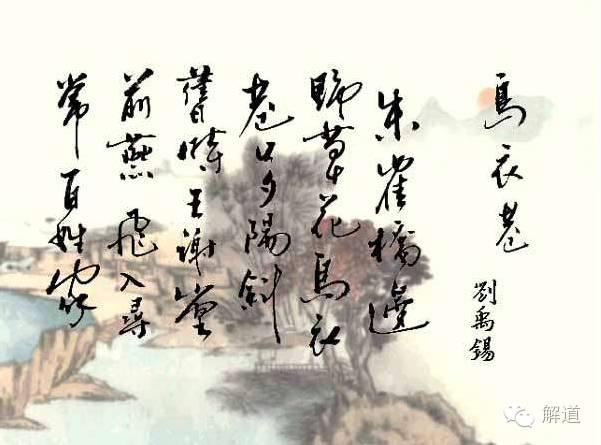 烏衣巷
劉禹錫
朱雀橋邊
野草花烏衣
巷口夕陽斜
舊時王謝堂
前燕飛入尋
常百姓家
解道